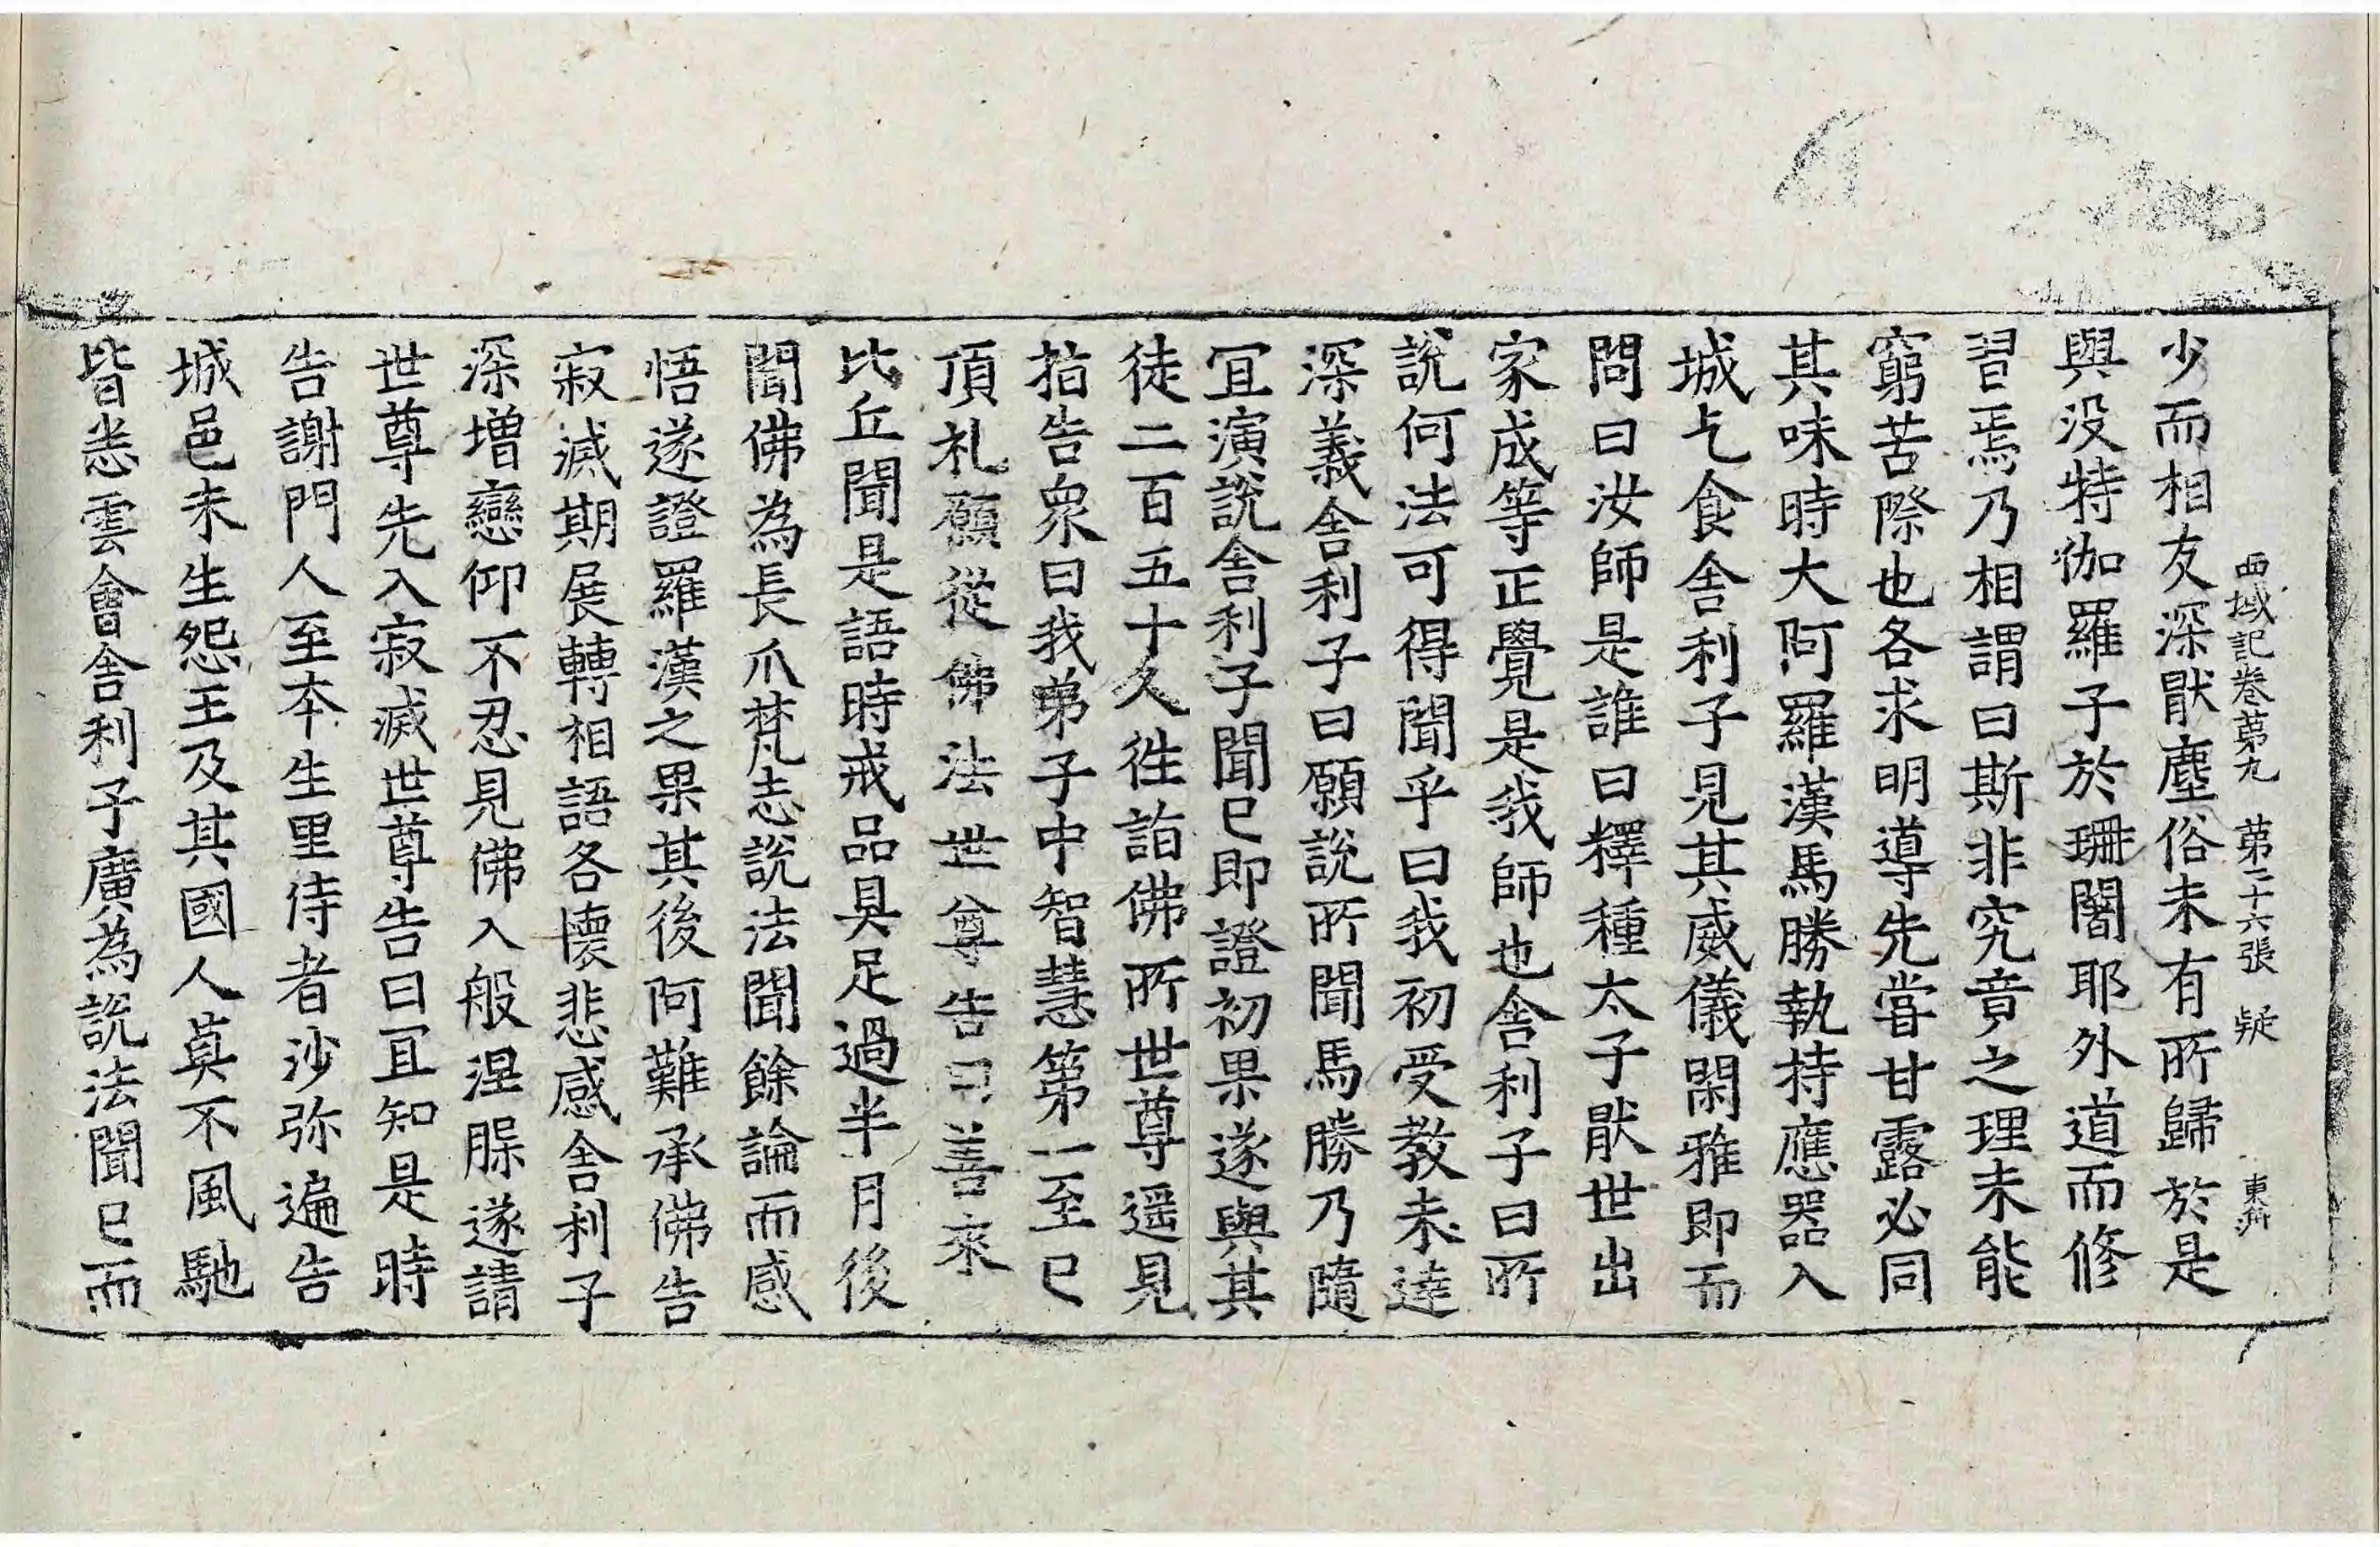 西域記卷苐九 苐二十六張 疑
少而相友深猒塵俗未有所歸於是
與没特伽羅子於珊闍耶外道而修
習焉乃相謂曰斯非究竟之理未能
窮苦際也各求明導先甞甘露必同
其味時大阿羅漢馬勝執持應器入
城乞食舍利子見其威儀閑雅即而
問曰汝師是誰曰釋種太子猒世出
家成等正覺是我師也舍利子曰所
說何法可得聞乎曰我初受教未達
深義舍利子曰願說所聞馬勝乃隨
冝演說舍利子聞已即證初果遂與其
徒二百五十人徃詣佛所世尊遥見
指告衆曰我弟子中智慧第一至已
頂礼願從佛法世尊告曰善來
比丘聞是語時戒品具足過半月後
聞佛為長爪梵志說法聞餘論而感
悟遂證羅漢之果其後阿難承佛告
寂滅期展轉相語各懷悲感舍利子
深增戀仰不忍見佛入般涅槃遂請
世尊先入寂滅世尊告曰冝知是時
告謝門人至本生里侍者沙弥遍告
城邑未生怨王及其國人莫不風馳
皆悉雲會舍利子廣為說法聞已而